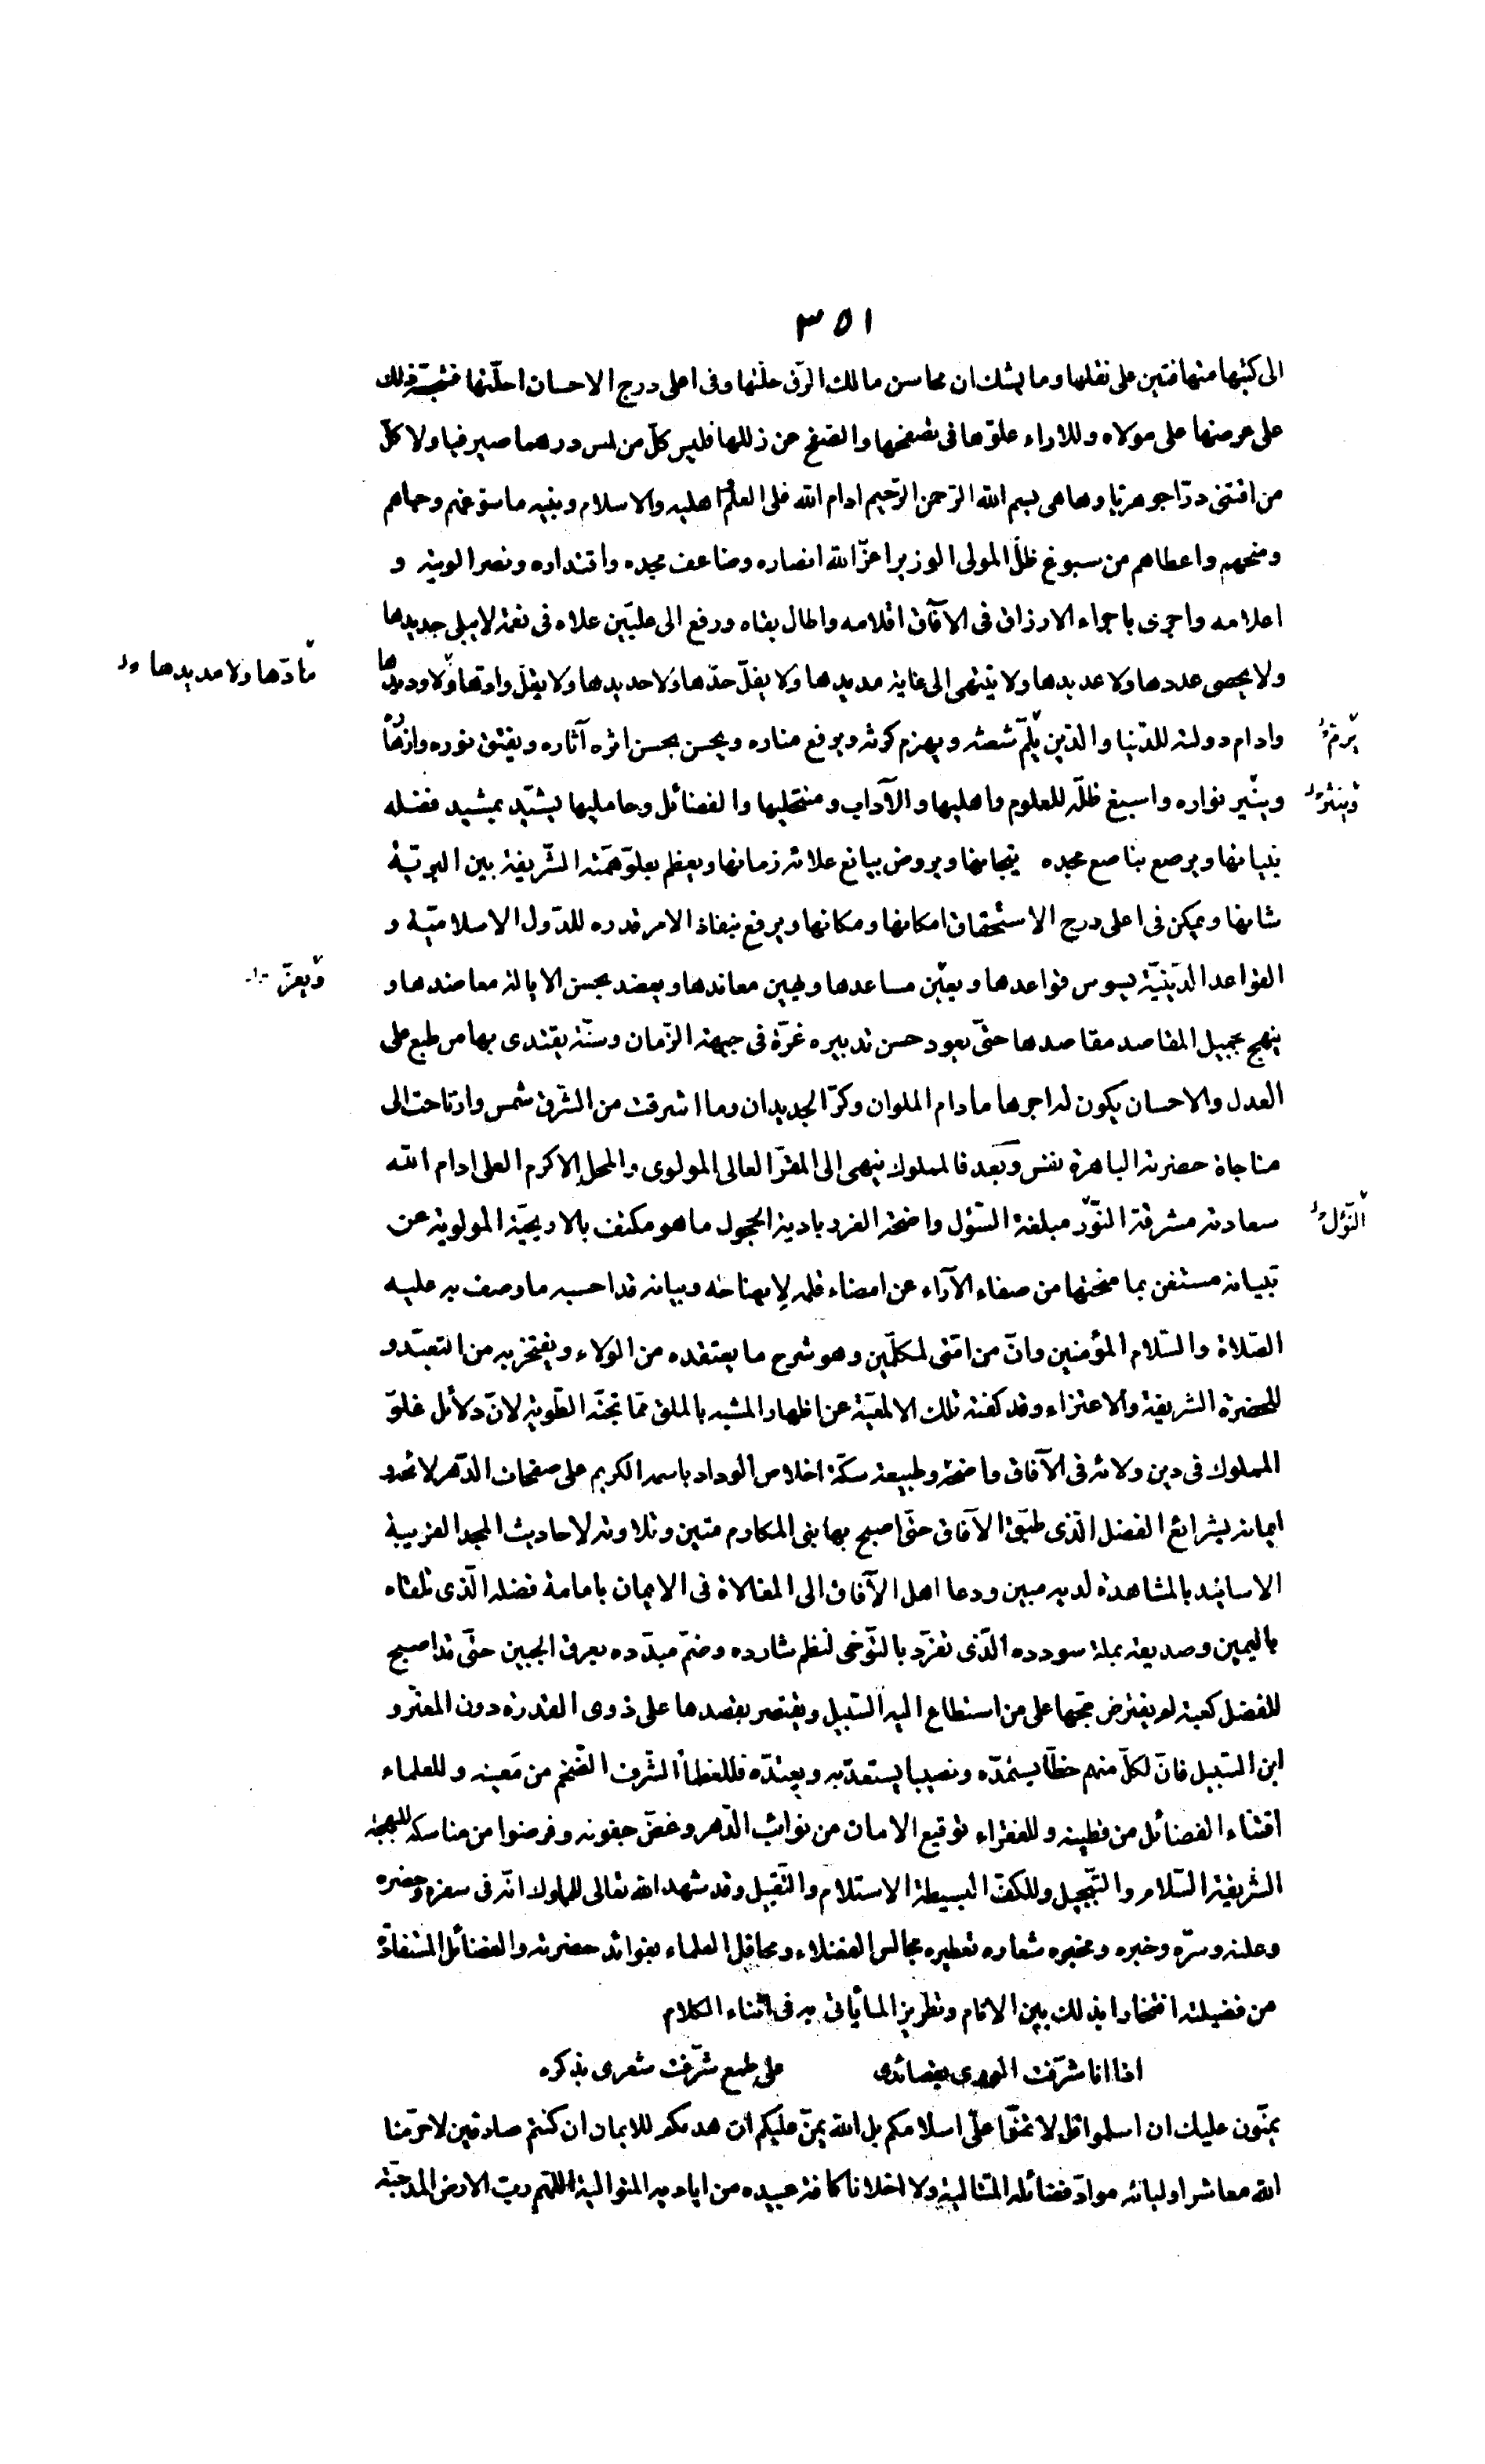 ٣٥١
الى كتبها متهافتين على نقلها وما يشك ان محاسن مالك الرق حلتها وفى اعلى درج الاحسان احلتها ذلك
على عرضها على مولاه وللاراء علوّها فى تصفحها والصفح عن زللها فليس كلّ من لمس درهما صيرفيا ولا كلّ
من اقتنى درّا جوهريا وها هى بسم الله الرّحمن الرّحيم ادام الله على العلم اهليه والاسلام وبنيه ما سوّغهم وحباهم
ومنحهم واعطاهم من سبوغ ظلّ المولى الوزير اعزّ الله انصاره وضاعف مجده واقتداره ونصر الويته و
اعلامه واجرى باجراء الارزاق فى الآفاق اقلامه واطال بقاه ورفع الى عليّين علاه فى نعمة لا يبلى جديدها
ولا يحصى عددها ولا عديدها ولا ينتهى الى غاية مديدها ولا يفلّ حدّها ولا حديدها ولا يقلّ وادّها ولا وديدها
مادّها ولا مديدها
وادام دولته للدّنيا والدّين يلمّ شعثه ويهزم كرثه ويرفع مناره ويحسن بحسن اثره آثاره ويفتق نوره وازهاره
يرم
وينير نواره واسبغ ظلّه للعلوم واهليها والآداب ومنتحليها والفضائل وحامليها يشيّد بمشيد فضله
وينثر
بنيانها ويرصع بناصع مجده تيجانها ويروض بيانع علائه زمانها ويعظم بعلوّ همّته الشّريفة بين البريّة
شانها ويمكن فى اعلى درج الاستحقاق امكانها ومكانها ويرفع بنفاذ الامر قدره للدّول الاسلاميّة و
القواعد الدّينيّة يسوس قواعدها ويعيّن مساعدها ويهين معاندها ويعضد بحسن الايالة معاضدها و
ويعزّ
ينهج بجميل المقاصد مقاصدها حتّى يعود حسن تدبيره غرّة فى جبهة الزّمان وسنّة يقتدى بها من طبع على
العدل والاحسان يكون له اجرها ما دام الملوان وكرّ الجديدان وما اشرقت من الشّرق شمس وارتاحت الى
مناجاة حضرته الباهرة نفس وبعد فالمملوك ينهى الى المقرّ العالى المولوى والمحل الاكرم العلى ادام الله
سعادته مشرقة النّور مبلغة السّؤل واضحة الغرر بادية الحجول ما هو مكتف بالاريحيّة المولوية عن
تبيانه مستغن بما منحتها من صفاء الآراء عن امضاء قلمه لايضاحه وبيانه قد احسبه ما وصف به عليه
الصّلاة والسّلام المؤمنين وانّ من امّتى لمكلّمين وهو شرح ما يعتقده من الولاء ويفتخر به من التعبّد و
للحضرة الشريفة والاعتزاء وقد كفته تلك الالمعيّة عن اظهار المشبه بالملق ممّا تجنّه الطّوية لانّ دلائل غلوّ
المملوك فى دين ولائه فى الآفاق واضحة وطبيعة سكّة اخلاص الوداد باسمه الكريم على صفحات الدّهر لائحة و
ايمانه بشرائع الفضل الّذى طبّق الآفاق حتّى اصبح بها بنى المكارم متين وتلاوته لاحاديث المجد الغريبة
الاسانيد بالمشاهدة لديه مبين ودعا اهل الآفاق الى المغالاة فى الايمان بامامة فضله الّذى تلقاه
باليمين وصديقه بملة سودده الّذى تفرّد بالتّوخى لنظم شارده وضمّ مبدّده بعرق الجبين حتّى قد اصبح
للفضل كعبة لم يفترض حجّها على من استطاع اليه السّبيل ويقتصر بقصدها على ذوى القدرة دون المعترّ و
ابن السّبيل فانّ لكلّ منهم حظّا يستمدّه ونصيبا يستعدّ به ويعتدّه فللعظماء الشّرف الضّخم من معينه وللعلماء
اقتناء الفضائل من قطينه وللفقراء توقيع الامان من نوائب الدّهر وغضّ جفونه وفرضوا من مناسكه للبهجة
الشّريفة السّلام والتّبجيل وللكفّ البسيطة الاستلام والتّقبيل وقد شهد الله تعالى للمملوك انّه فى سفره وحضره
وعلنه وسرّه وخبره ومخبره شعاره تعطيره مجالس الفضلاء ومحافل العلماء بفوائد حضرته والفضائل المستفادة
من فضيلته افتخارا بذلك بين الانام وتطريزا لما يأتى به فى اثناء الكلام
اذا انا شرّفت الورى بقصائدى على طمع شرّفت شعرى بذكره
يمنّون عليك ان اسلموا قل لا تمنّوا علىّ اسلامكم بل الله يمنّ عليكم ان هديكم للايمان ان كنتم صادقين لا حرّمنا
الله معاشر اوليائه موادّ فضائله المتتالية ولا اخلانا كافة عبيده من اياديه المتوالية اللّهمّ ربّ الارض المدحيّة